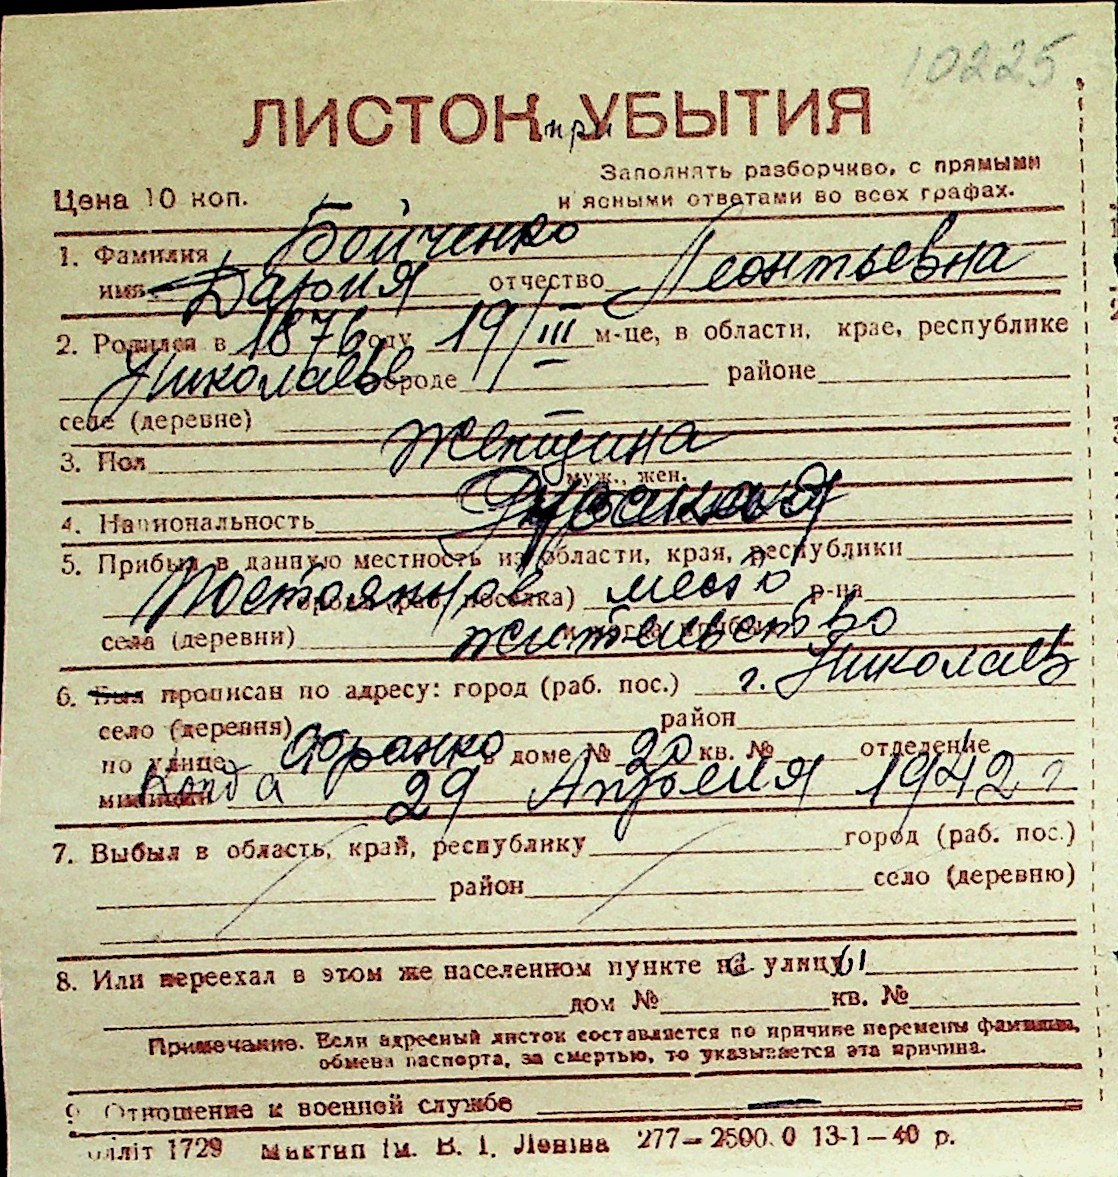 10225
ЛИСТОК при УБЫТИЯ
Заполнять разборчиво, с прямыми
и ясными ответами во всех графах.
Цена 10 коп.
1. Фамилия Бойченко
имя Дария отчество Леонтьевна
2. Родился в 1876 году 19/III м-це, в области, крае, республике
Николаев городе районе
селе (деревне) —
3. Пол женщина
муж., жен.
4. Национальность
5. Прибыл в данную местность из области, края, республики
Постоянное города (раб. поселка) место р-на
села (деревни) жительство
6. Был прописан по адресу: город (раб. пос.) г. Николаев
село (деревня) район
по улице Франко доме № 20 кв. № отделение
милиции Когда 29 Апреля 1942 г
7. Выбыл в область, край, республику город (раб. пос.)
район село (деревню)
8. Или переехал в этом же населенном пункте с улицы
дом № кв. №
Примечание. Если адресный листок составляется по причине перемены фамилии,
обмена паспорта, за смертью, то указывается эта причина.
9. Отношение к военной службе —
лліт 1729 Миктип ім. В. І. Леніна 277—2500.0 13-1—40 р.